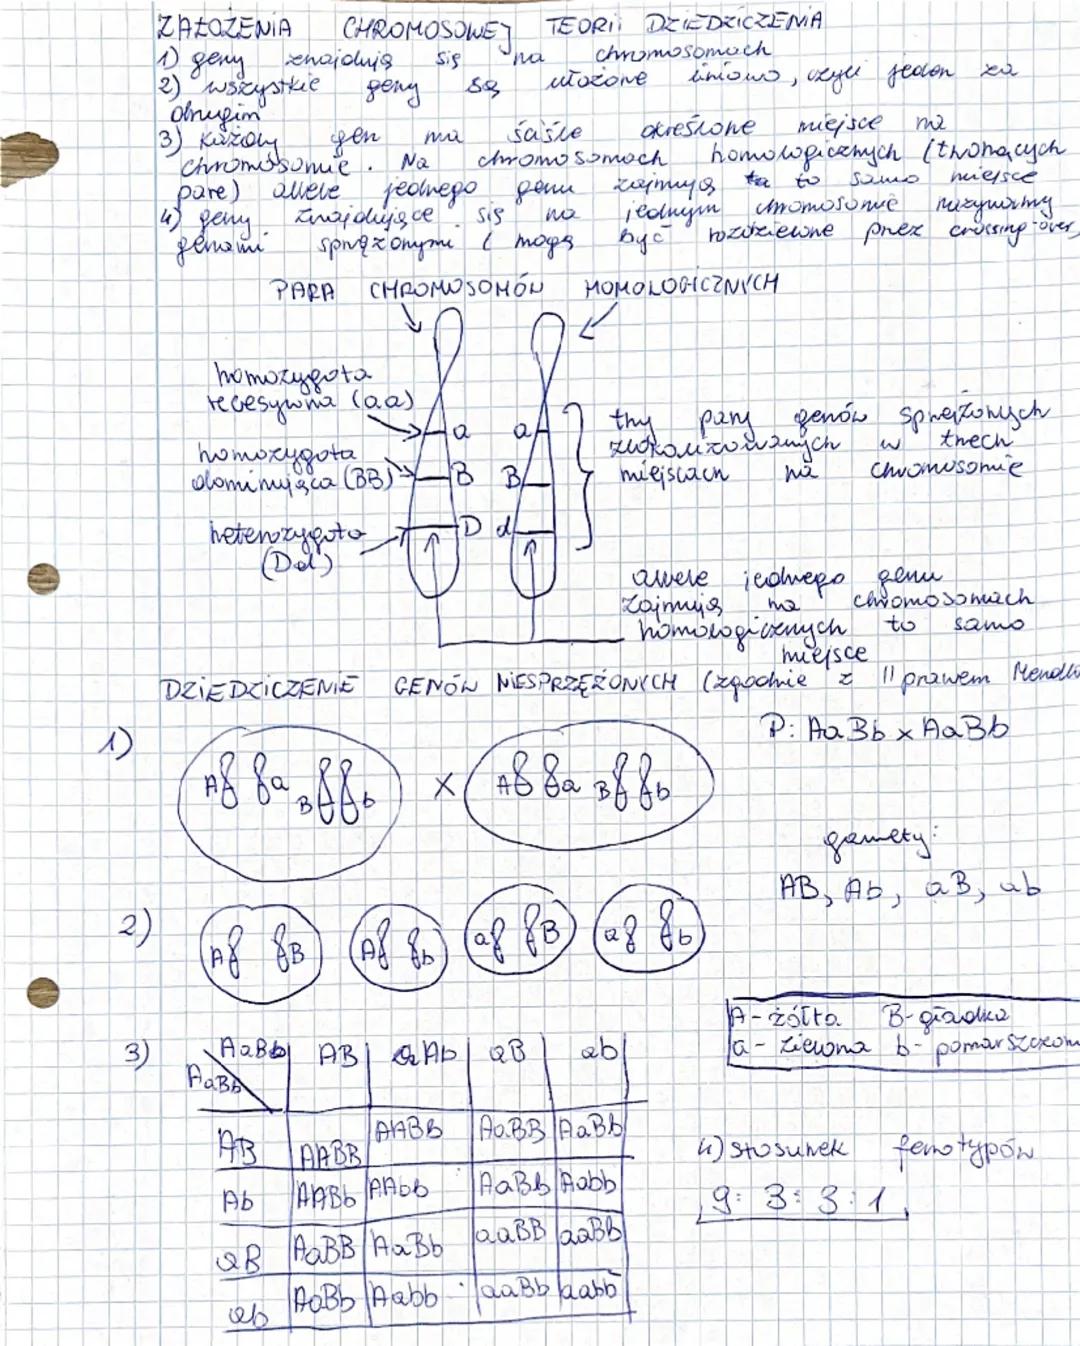 ZAŁOŻENIA CHROMOSOWEJ TEORII DZIEDZICZENIA
1) geny znajdują się na chromosomach
2) wszystkie geny są ułożone liniowo, czyli jeden za
drugim
3) każdy gen ma ściśle określone miejsce na
chromosomie. Na chromosomach homologicznych (tworzących
parę) allele jednego genu zajmują to samo miejsce
4) geny znajdujące się na jednym chromosomie nazywamy
genami sprzężonymi (mogą być rozdzielone przez crossing-over)
PARA CHROMOSOMÓW HOMOLOGICZNYCH
homozygota
recesywna (aa)
a a
homozygota
dominująca (BB)
B B
heterozygota
(Dd)
D d
trzy pary genów sprzężonych
zlokalizowanych w trzech
miejscach na chromosomie
allele jednego genu
zajmują na chromosomach
homologicznych to samo
miejsce
DZIEDZICZENIE GENÓW NIESPRZĘŻONYCH (zgodnie z II prawem Mendla
1)
A a B b x A a B b
P: AaBb x AaBb
gamety:
AB, Ab, aB, ab
2)
A B A b a B a b
A - żółta B - gładka
a - zielona b - pomarszczona
3)
AaBb AB Ab aB ab
AaBb
AB AABB AABB AaBB AaBb
Ab AABb AAbb AaBb Aabb
aB AaBB AaBb aaBB aaBb
ab AaBb Aabb aaBb aabb
4) stosunek fenotypów
9 : 3 : 3 : 1